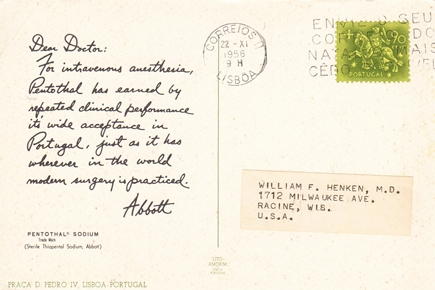 Dear Doctor:
For intravenous anesthesia,
Pentothal has earned by
repeated clinical performance
its wide acceptance in
Portugal, just as it has
wherever in the world
modern surgery is practiced.
Abbott
PENTOTHAL® SODIUM
Trade Mark
(Sterile Thiopental Sodium, Abbott)
PRAÇA D. PEDRO IV, LISBOA-PORTUGAL
CORREIOS
22 - XI
1956
9 H
LISBOA
ENVIE O SEU
PORTUGAL
WILLIAM F. HENKEN, M.D.
1712 MILWAUKEE AVE.
RACINE, WIS.
U.S.A.